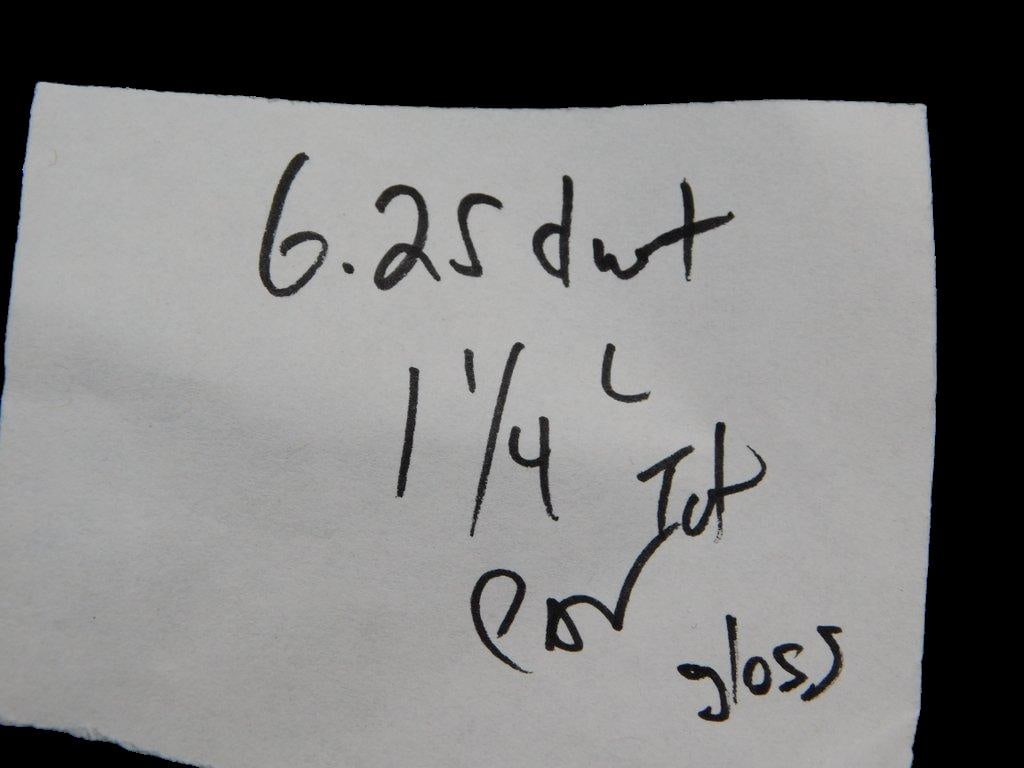 6.25 dwt
1 1/4 L
Tot
gloss